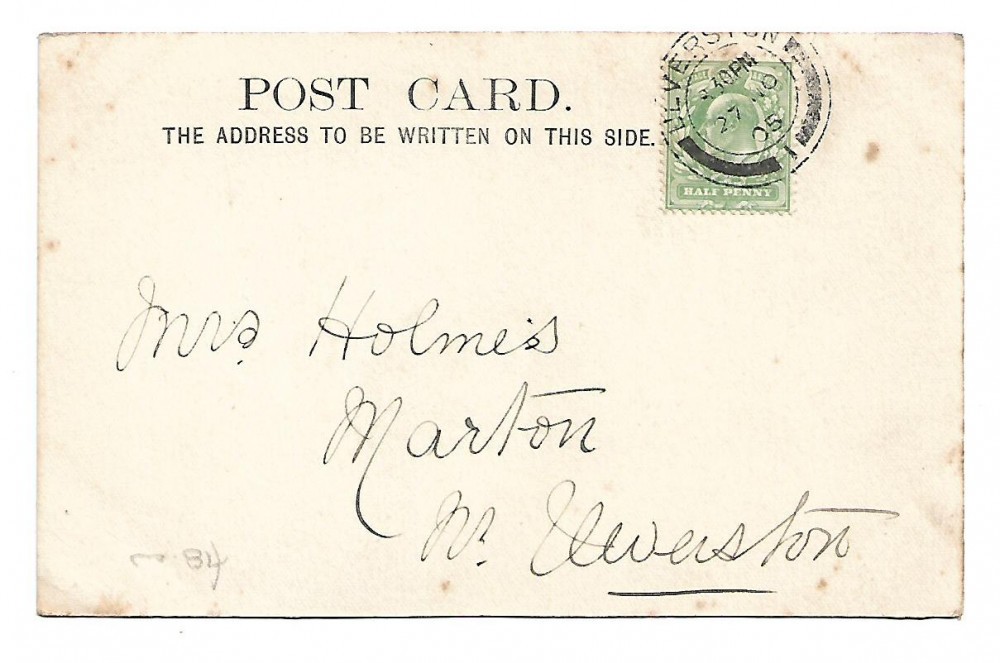 POST CARD.
THE ADDRESS TO BE WRITTEN ON THIS SIDE.
ULVERSTON
40PM
27 NO
05
1
HALF PENNY
Mrs Holmes
Marton
Nr. Ulverston
84